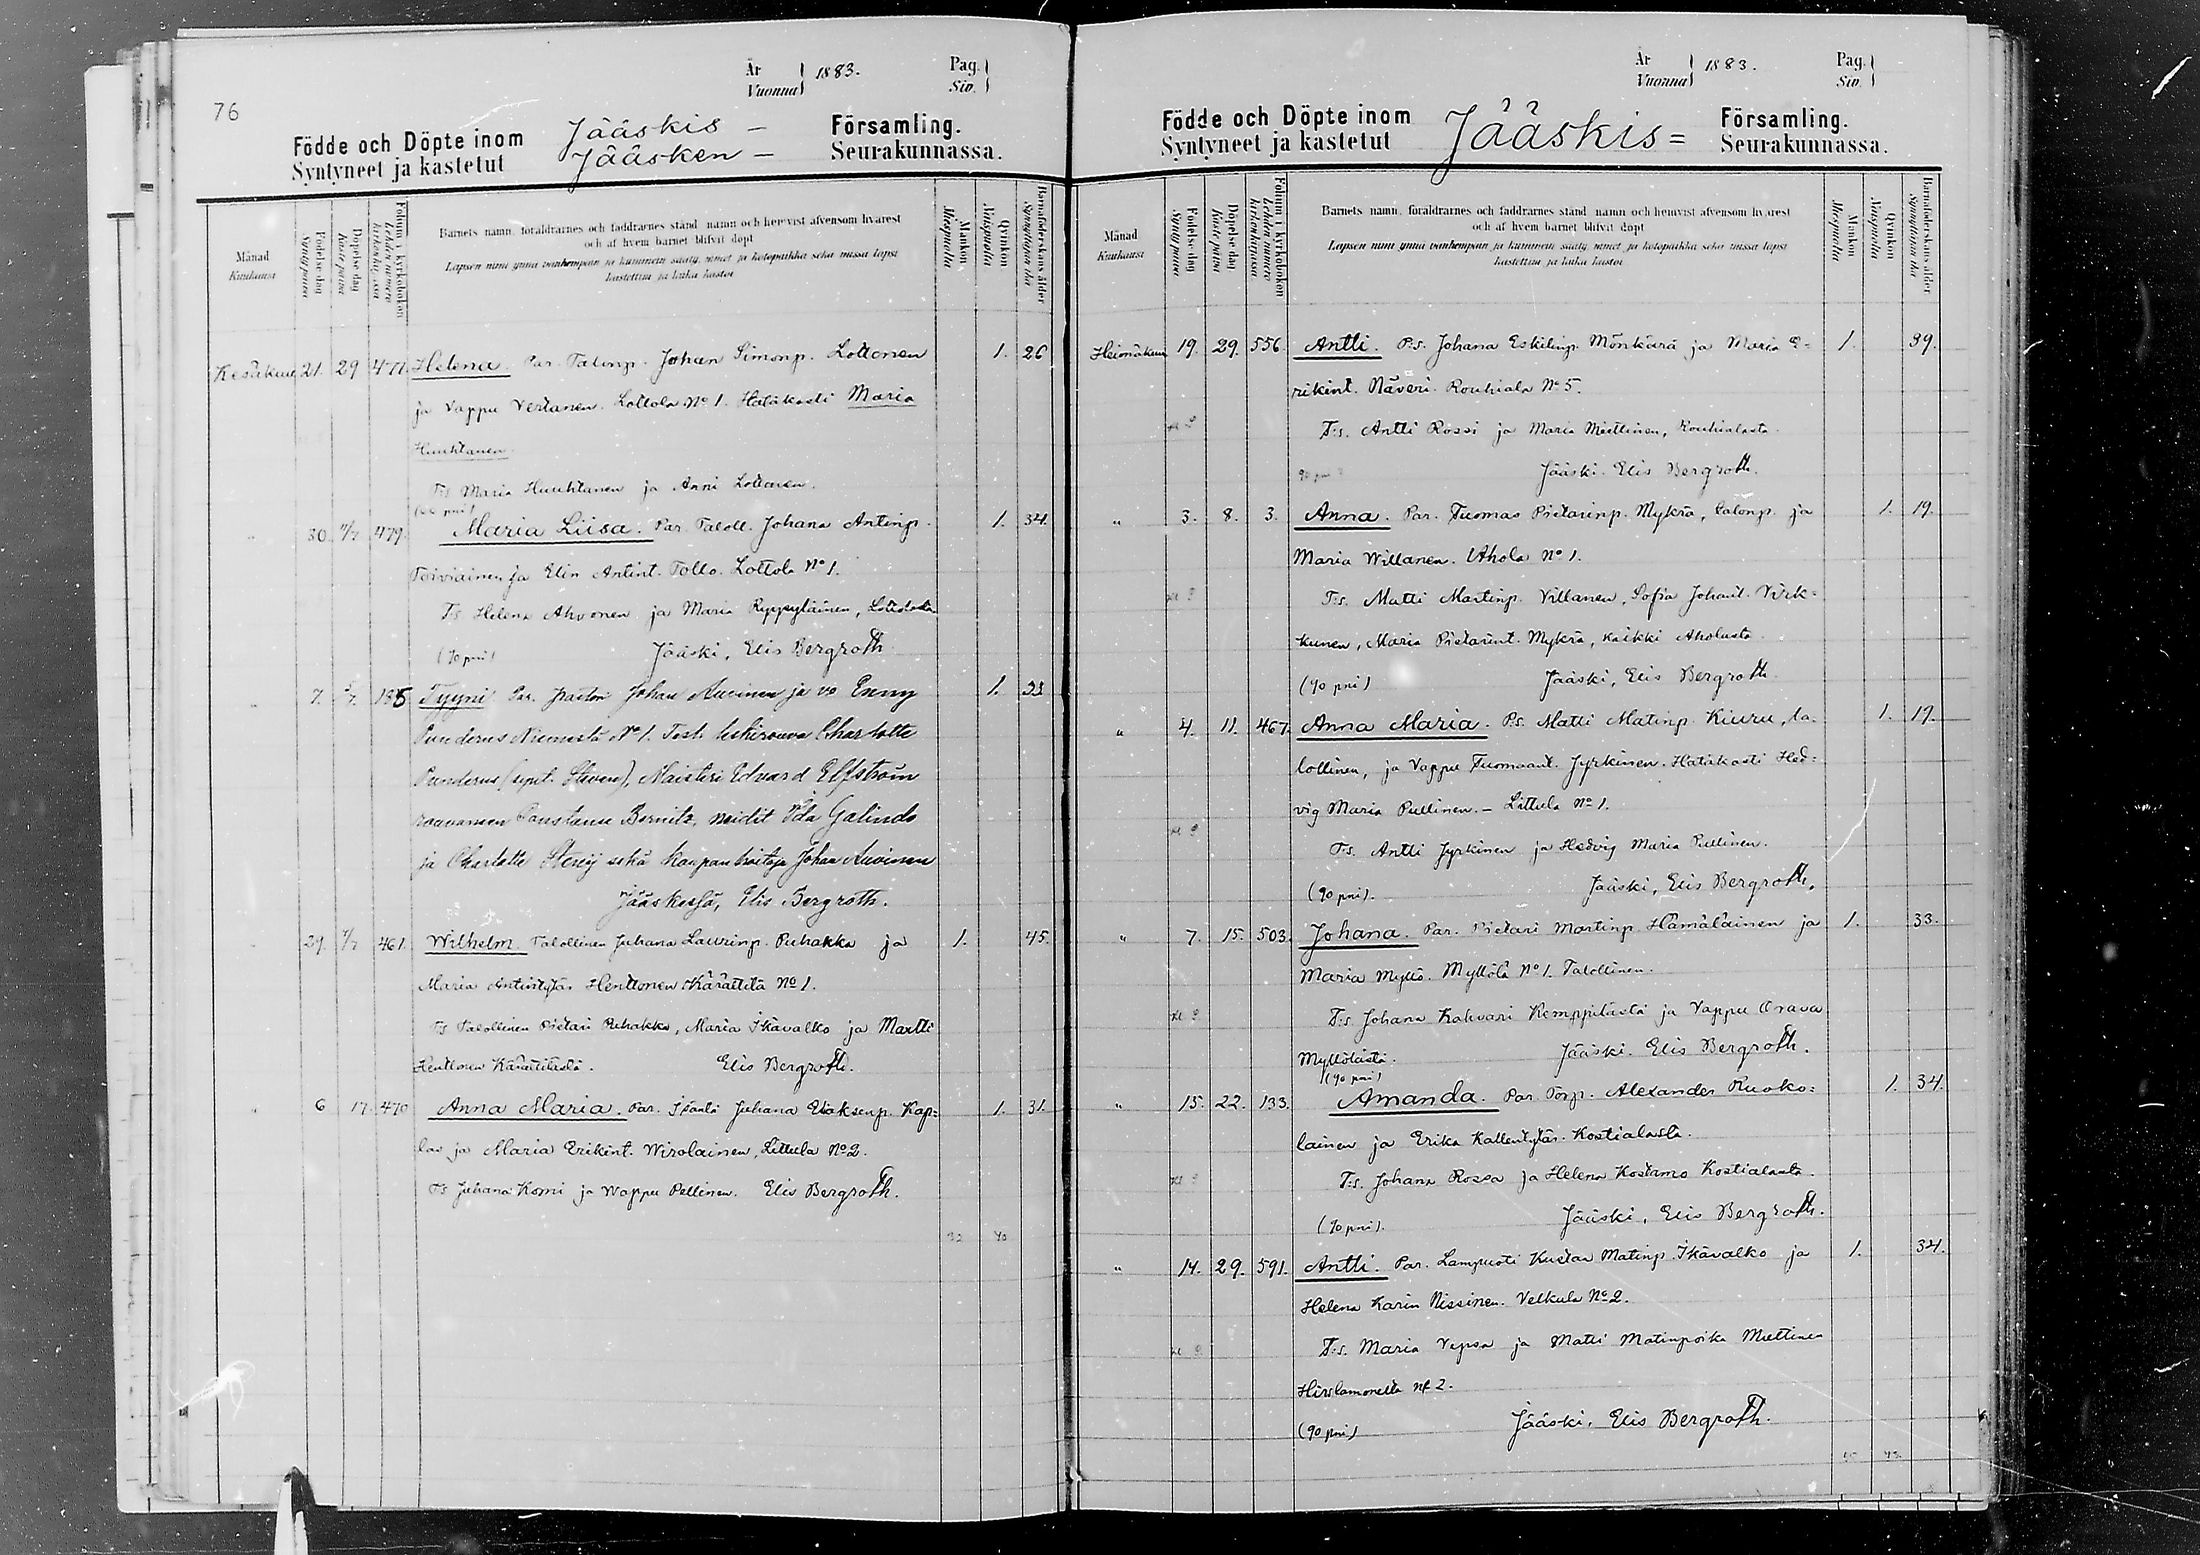 76
År 1883. Pag.
Vuonna Siv.
Födde och Döpte inom Jääskis - Församling.
Syntyneet ja kastetut Jääsken - Seurakunnassa.
Månad Kuukausi
Födelsedag Syntypäivä
Döpelsedag Kastepäivä
Folium i kyrkoboken
Barnets namn, föräldrarnes och faddrarnes stånd namn och hemvist äfvensom hvarest
och af hvem barnet blifvit döpt
Lapsen nimi ynnä vanhempain ja kummein sääty, nimet ja kotopaikka sekä missä lapsi
kastettiin ja kuka kastoi
Mankön Miespuolia
Qvinkön Naispuolia
Barnaföderskans ålder Synnyttäjän ikä
Kesäkuu 21. 29 477. Helena. Par. Talonp. Johan Simonp. Lottonen 1. 26
ja Vappu Vertanen. Lottola No 1. Hätäkasti Maria
Huuhtanen.
T:s Maria Huuhtanen ja Anni Lottonen.
" 30. 479. Maria Liisa. Par. Taloll. Johana Antinp. 1. 34.
Toiviainen ja Elin Antint. Tollo. Lottola No 1.
T:s Helena Ahvonen ja Maria Ryppyläinen,
(70 pni) Jääski, Elis Bergroth
" 7. Tyyni Par. Johan Auvinen ja vo Enny 1. 23
Punderus Niemestä No 1. Test. leskirouva Charlotte
Punderus (synt. Steven), Maisteri Edvard Elfström
rouvansen Constance Bernitz, neidit Ida Galindo
ja Charlotte sekä kaupanhoitaja Johan Auvinen
Jääskessä, Elis Bergroth.
" 29. 461. Wilhelm Talollinen Juhana Laurinp. Puhakka ja 1. 45.
Maria Antintytär Henttonen Kärättilä No 1.
T:s Talollinen Pietari Puhakka, Maria Ikävalko ja Martti
Henttonen Kärättilästä. Elis Bergroth.
" 6 17. 470 Anna Maria. Par. Isäntä Juhana Isaksenp. Kap= 1. 31.
las ja Maria Erikint. Wirolainen, Littula No 2.
T:s Juhana Komi ja Wappu Pellinen. Elis Bergroth.
32 40
År 1883. Pag.
Vuonna Siv.
Födde och Döpte inom Jääskis= Församling.
Syntyneet ja kastetut Seurakunnassa.
Månad Kuukausi
Födelsedag Syntypäivä
Döpelsedag Kastepäivä
Folium i kyrkoboken
Barnets namn, föräldrarnes och faddrarnes stånd namn och hemvist äfvensom hvarest
och af hvem barnet blifvit döpt
Lapsen nimi ynnä vanhempain ja kummein sääty, nimet ja kotopaikka sekä missä lapsi
kastettiin ja kuka kastoi
Mankön Miespuolia
Qvinkön Naispuolia
Barnaföderskans ålder Synnyttäjän ikä
Heinäkuu 19. 29. 556. Antti. P:s. Johana Eskilinp. Mönkärä ja Maria E= 1. 39.
rikint. Näveri. Rouhiala No 5.
T:s. Antti Rossi ja Maria Miettinen, Rouhialasta.
Jääski. Elis Bergroth.
" 3. 8. 3. Anna. Par. Tuomas Pietarinp. Mykrä, talonp. ja 1. 19.
Maria Willanen. Ahola No 1.
T:s. Matti Martinp. Villanen, Sofia Johant. Virk=
kunen, Maria Pietarint. Mykrä, kaikki Aholasta.
(90 pni) Jääski, Elis Bergroth
" 4. 11. 467. Anna Maria. P:s. Matti Matinp. Kiuru, ta= 1. 19.
lollinen, ja Vappu Tuomaant. Jyrkinen. Hätäkasti Hed=
vig Maria Pullinen. - Littula No 1.
T:s. Antti Jyrkinen ja Hedvig Maria Pullinen.
(90 pni). Jääski, Elis Bergroth.
" 7. 15. 503. Johana. Par. Pietari Martinp. Hämäläinen ja 1. 33.
Maria Myllö. Myllölä No 1. Talollinen.
T:s Johana Kahvari Kemppilästä ja Vappu Orava
Myllölästä. Jääski. Elis Bergroth.
(90 pni)
" 15. 22. 133. Amanda. Par. Torp. Alexander Ruoko= 1. 34.
lainen ja Erika Kallentytär. Kostialasta.
T:s. Johana Rossa ja Helena Kostamo Kostialasta.
(70 pni). Jääski, Elis Bergroth.
" 14. 29. 591. Antti. Par. Lampuoti Kustaa Matinp. Ikävalko ja 1. 34.
Helena Karin Nissinen. Velkula No 2.
T:s. Maria Vepsä ja Matti Matinpoika Miettinen
No 2.
(90 pni) Jääski. Elis Bergroth.